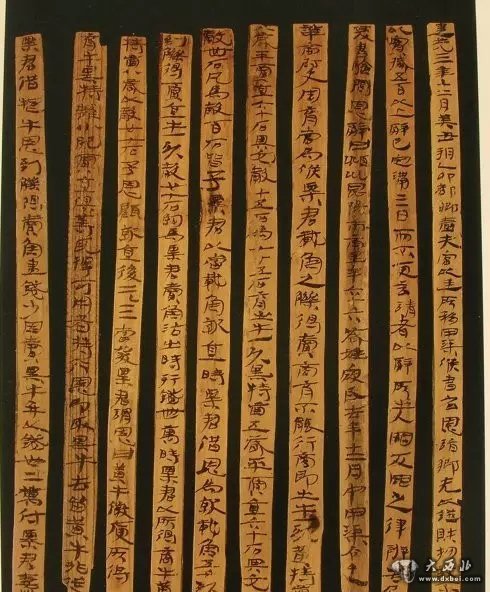 建武三年十二月癸丑朔乙卯都鄉嗇夫宮以廷所移甲渠候書召恩詣鄉先以證財物
以實臧五百以上辭已定滿三日而不更言請者以辭所出入罪反罪之律辨告
爰書驗問恩辭曰潁川昆陽市南里年六十六歲姓寇氏去年十二月中甲渠令史
華商尉史周育當為候粟君載魚之觻得賣商育不能行商即出牛一頭黃特
齒八歲平賈直六十石與交穀十五石為七十五石育出牛一頭黑特齒五歲平賈直六十石與交
穀卌石凡為穀百石皆予粟君以當載魚就直時粟君借恩為就載魚五千
到觻得賈直牛一頭穀廿七石約為粟君賣魚沽出時行錢卌萬時粟君以所得商牛黃
特齒八歲以穀廿七石予恩顧就直後二三日當發粟君謂恩曰黃牛微庾所得
育牛黑特雖小肥賈直俱等耳擇可用者持行恩即取黑牛去留黃牛非從
粟君借犎牛恩到觻得賣魚盡錢少因賣黑牛并以錢卅二萬付粟君妻業
大西北
www.dxbei.com